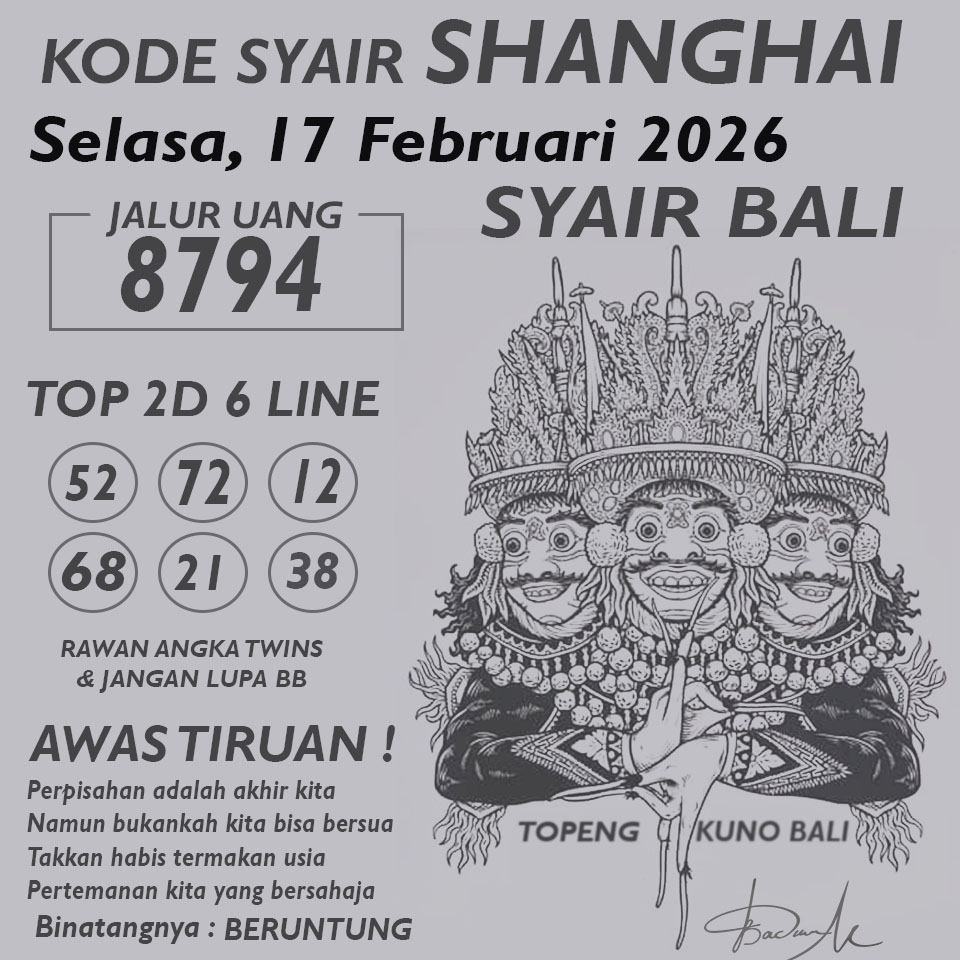 KODE SYAIR SHANGHAI
Selasa, 17 Februari 2026
SYAIR BALI
JALUR UANG
8794
TOP 2D 6 LINE
52 72 12
68 21 38
RAWAN ANGKA TWINS
& JANGAN LUPA BB
AWAS TIRUAN !
Perpisahan adalah akhir kita
Namun bukankah kita bisa bersua
Takkan habis termakan usia
Pertemanan kita yang bersahaja
Binatangnya : BERUNTUNG
TOPENG KUNO BALI